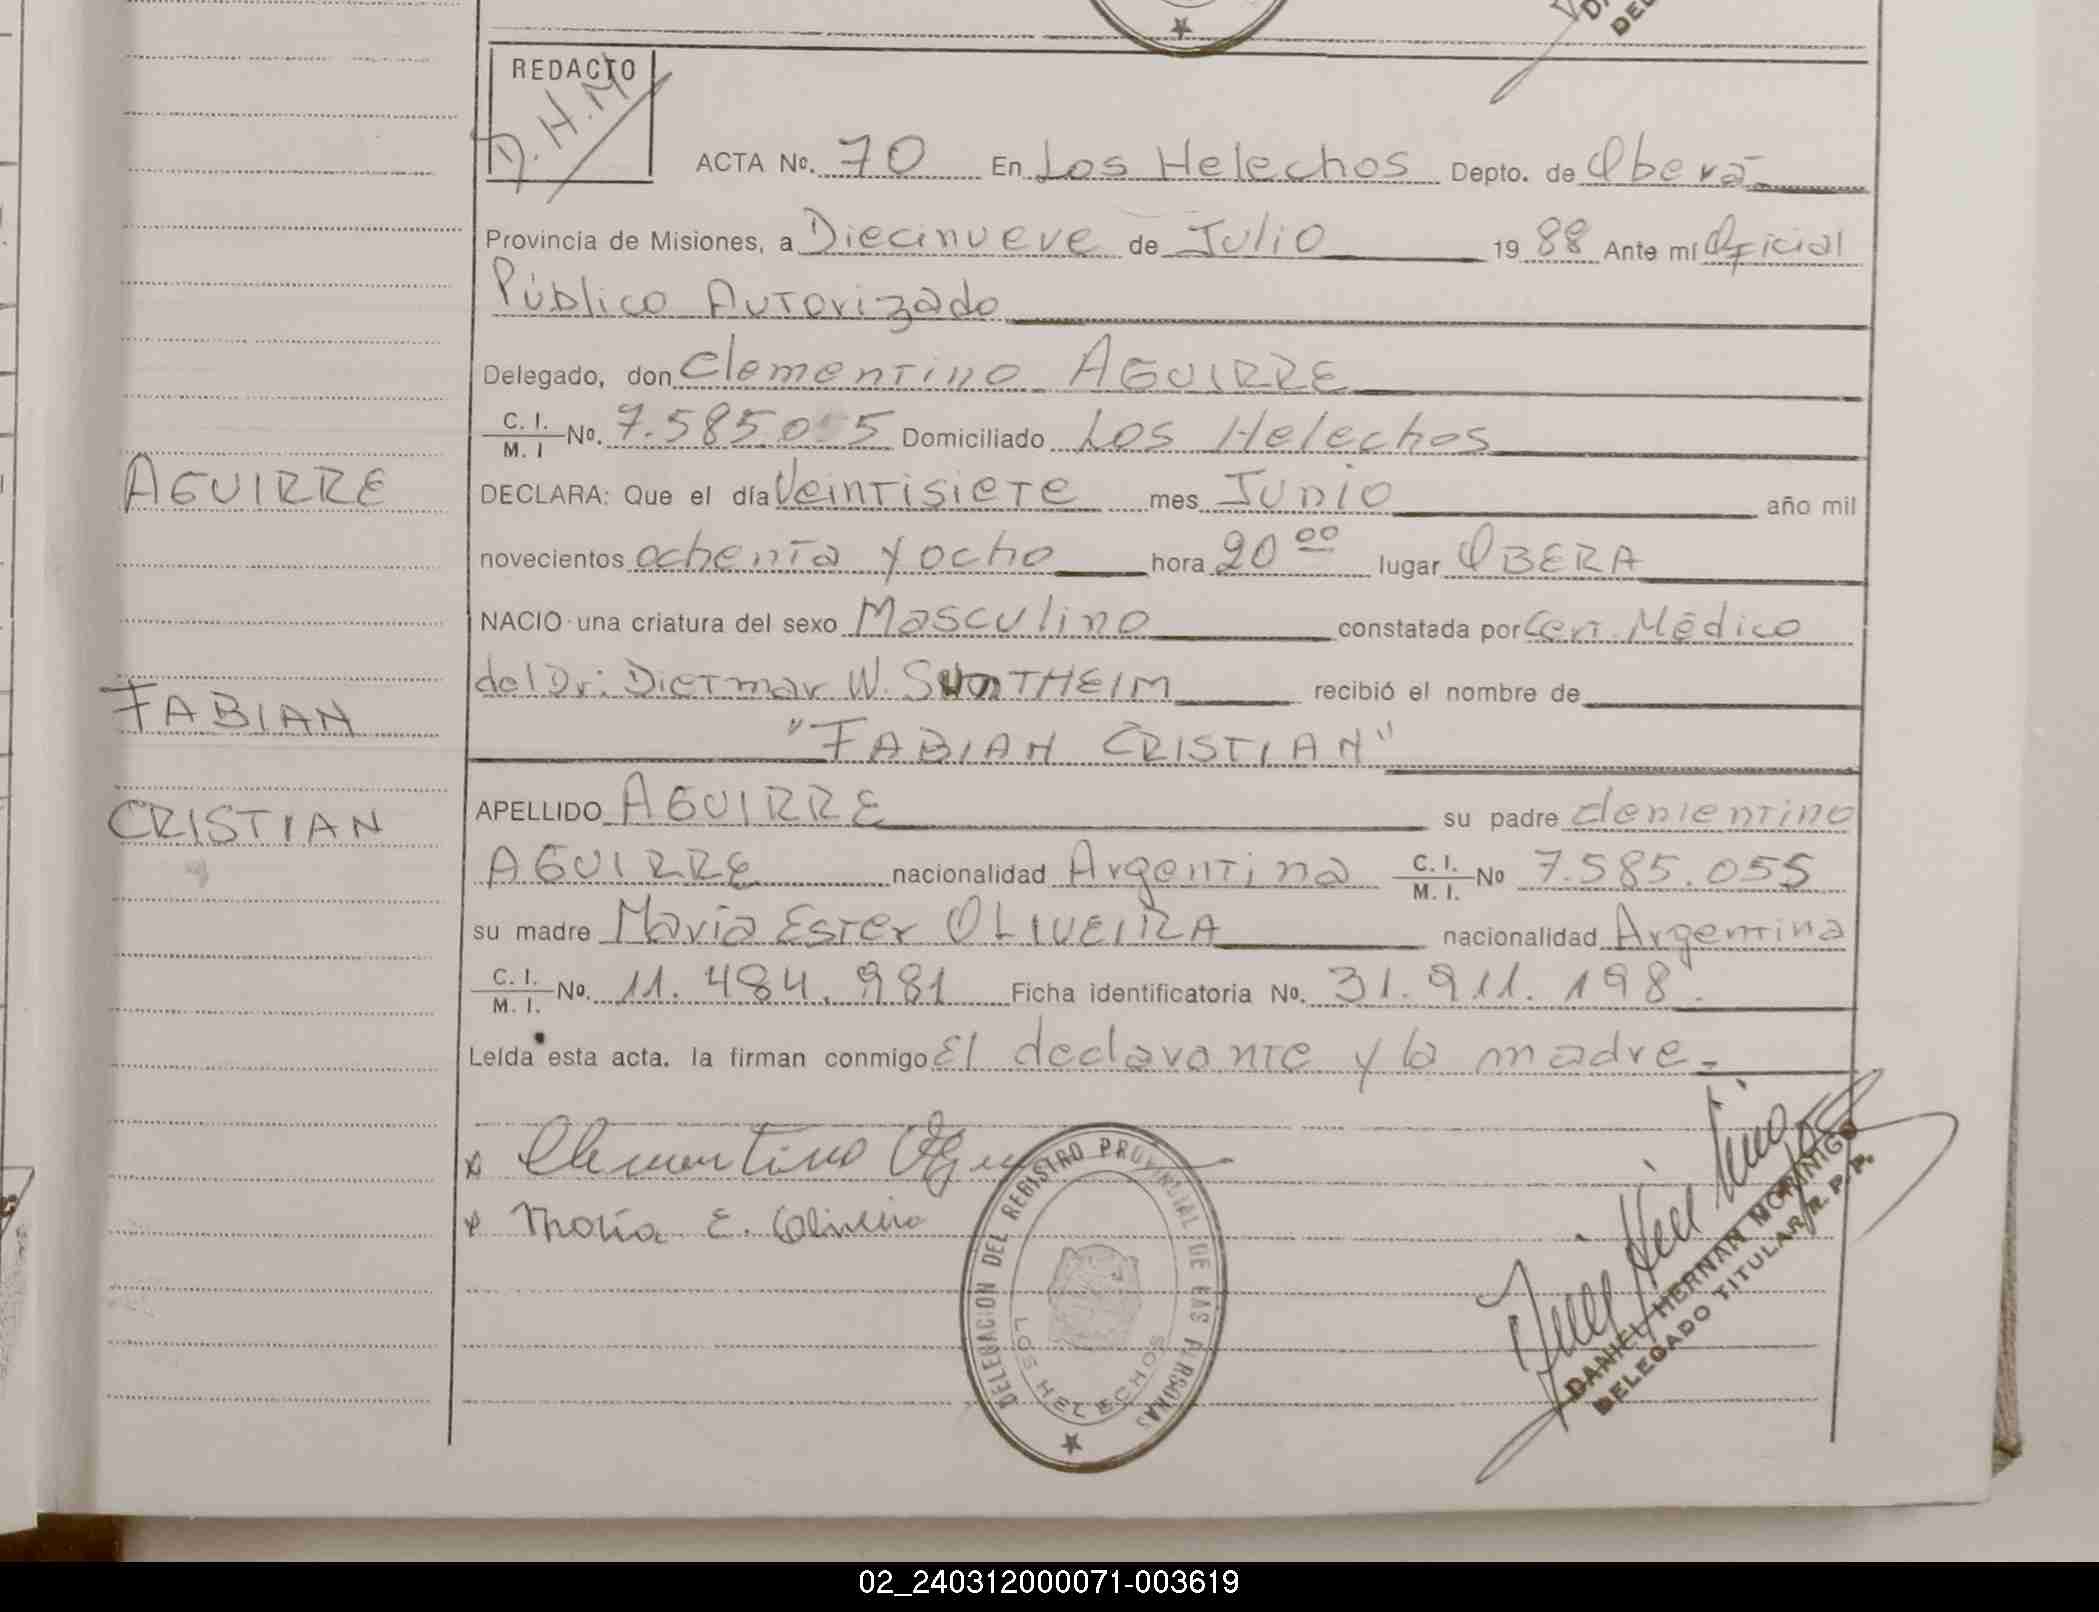 REDACTO
D.H.M
ACTA Nº. 70 En Los Helechos Depto. de Oberá
Provincia de Misiones, a Diecinueve de Julio 1988 Ante mí Oficial
Público Autorizado
Delegado, don Clementino AGUIRRE
C. I. / M. I Nº. 7.585.055 Domiciliado Los Helechos
AGUIRRE
DECLARA: Que el día Veintisiete mes Junio año mil
novecientos ochenta y ocho hora 20 00 lugar OBERA
NACIO una criatura del sexo Masculino constatada por Cert. Médico
del Dr: Dietmar W. SUNTHEIM recibió el nombre de
FABIAN
"FABIAN CRISTIAN"
CRISTIAN
APELLIDO AGUIRRE su padre Clementino
AGUIRRE nacionalidad Argentina C. I. / M. I. Nº 7.585.055
su madre María Ester OLIVEIRA nacionalidad Argentina
C. I. / M. I. Nº. 11.484.981 Ficha identificatoria Nº. 31.911.198.
Leída esta acta. la firman conmigo El declarante y la madre.-
x Clementino Aguirre
x María E. Oliveira
DELEGACION DEL REGISTRO PROVINCIAL DE LAS PERSONAS
LOS HELECHOS
DANIEL HERNAN MORINIGO
DELEGADO TITULAR R. P. P.
02_240312000071-003619